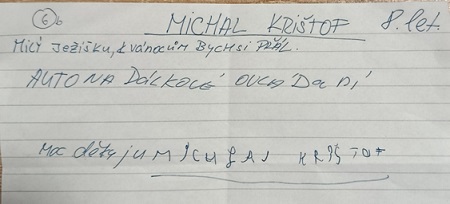 6 b MICHAL KRIŠTOF 8. let.
MILÍ JEŽÍŠKU, k VÁNOCŮM BYCH SI PŘÁL.
AUTO NA DÁLKOVÉ OVLADANÍ
Moc děkuju MICHAL KRIŠTOF